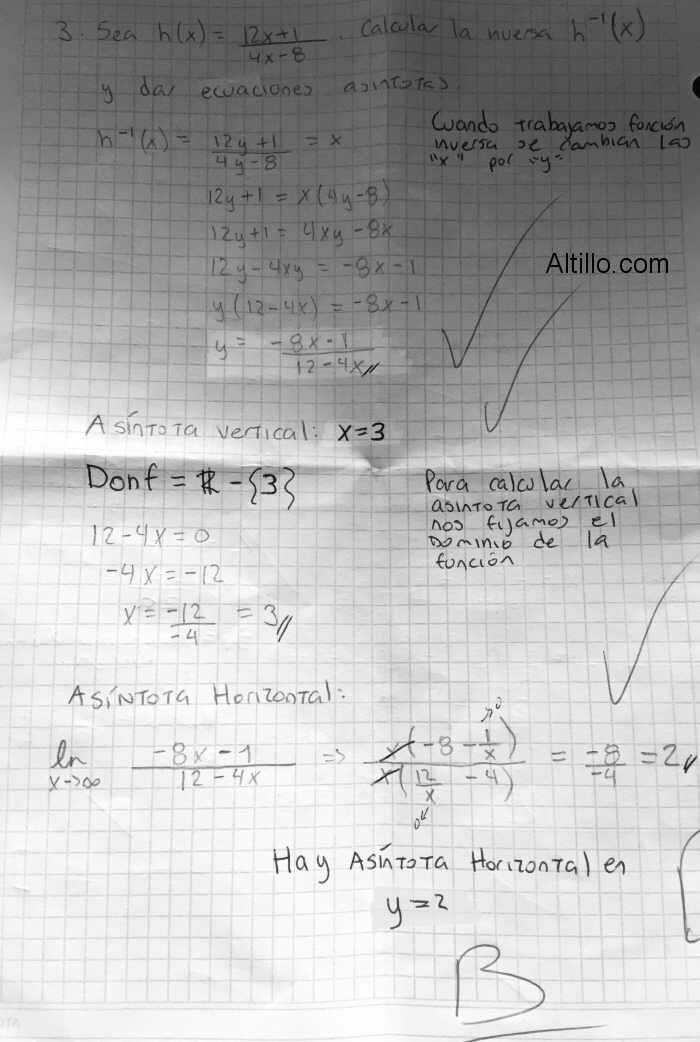 3. Sea h(x) = 12x+1 / 4x-8 . Calcular la inversa h⁻¹(x)
y dar ecuaciones asintotas.
h⁻¹(x) = 12y+1 / 4y-8 = x
Cuando trabajamos función
inversa se cambian las
"x" por "y"
12y+1 = x(4y-8)
12y+1 = 4xy-8x
12y-4xy = -8x-1
Altillo.com
y(12-4x) = -8x-1
y = -8x-1 / 12-4x //
Asíntota vertical: x=3
Domf = ℝ - {3}
Para calcular la
asintota vertical
nos fijamos el
Dominio de la
función
12-4x=0
-4x=-12
x= -12 / -4 = 3 //
Asíntota Horizontal:
lm x→∞ -8x-1 / 12-4x => x(-8 - 1/x) →0 / x(12/x - 4) 0← = -8 / -4 = 2 //
Hay Asíntota Horizontal en
y=2
B